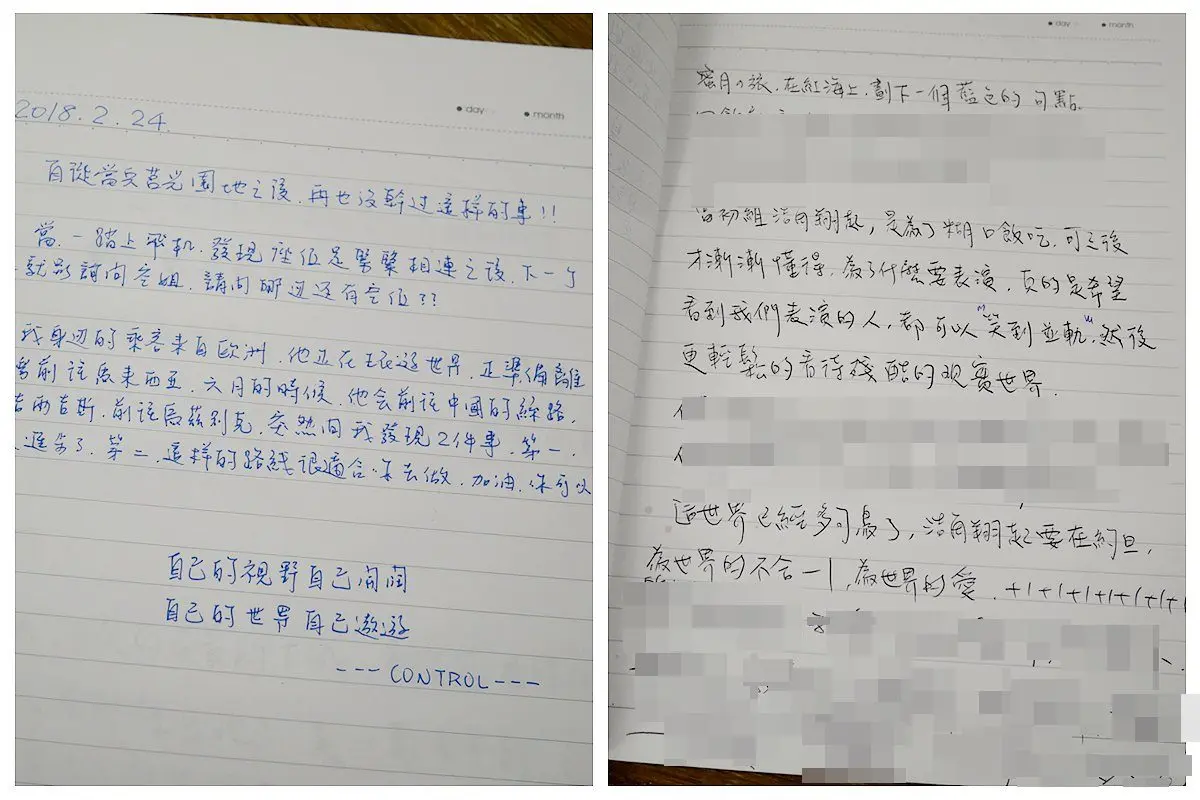 day month
2018.2.24.
自從當兵莒光園地之後,再也沒幹過這樣的事!!
當,一踏上飛机,發現座位是緊緊相連之後,下一
就的詢問空姐,請問哪邊還有空位??
我身边的乘客来自欧洲,他正在環遊世界,正準備離
前往馬來西亞,六月的時候,他会前往中國的絲路,
吉爾吉斯,前往烏茲別克,突然间我發現2件事,第一,
了,第二,這样的路线很適合去做,加油,你可以
自己的視野自己開闊
自己的世界自己遨遊
---CONTROL---
day month
蜜月の旅,在紅海上,劃下一個藍色的句點。
當初組浩角翔起,是為了糊口飯吃,可之後
才漸漸懂得,為了什麼要表演,真的是希望
看到我們表演的人,都可以"笑到並軌",然後
更輕鬆的看待殘酷的观賞世界.
這世界已經多可憐了,浩角翔起要在約旦,
為世界的不合-1,為世界的愛,+1+1+1+1+1+1+1